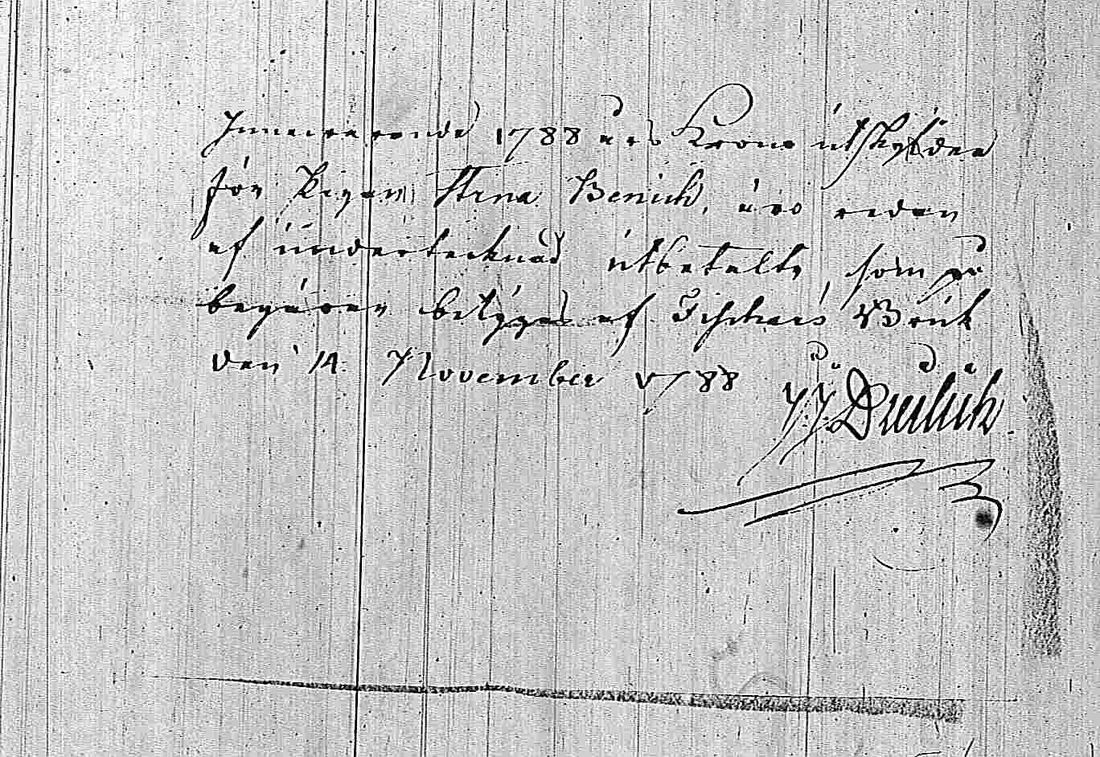 Innewarande 1788 års Krono utskylder
för Pigan Stina Benich, äro redan
af undertecknad utbetalte, som på
begäran betygas af Fischars Bruk
den 14. November 1788
J. J.